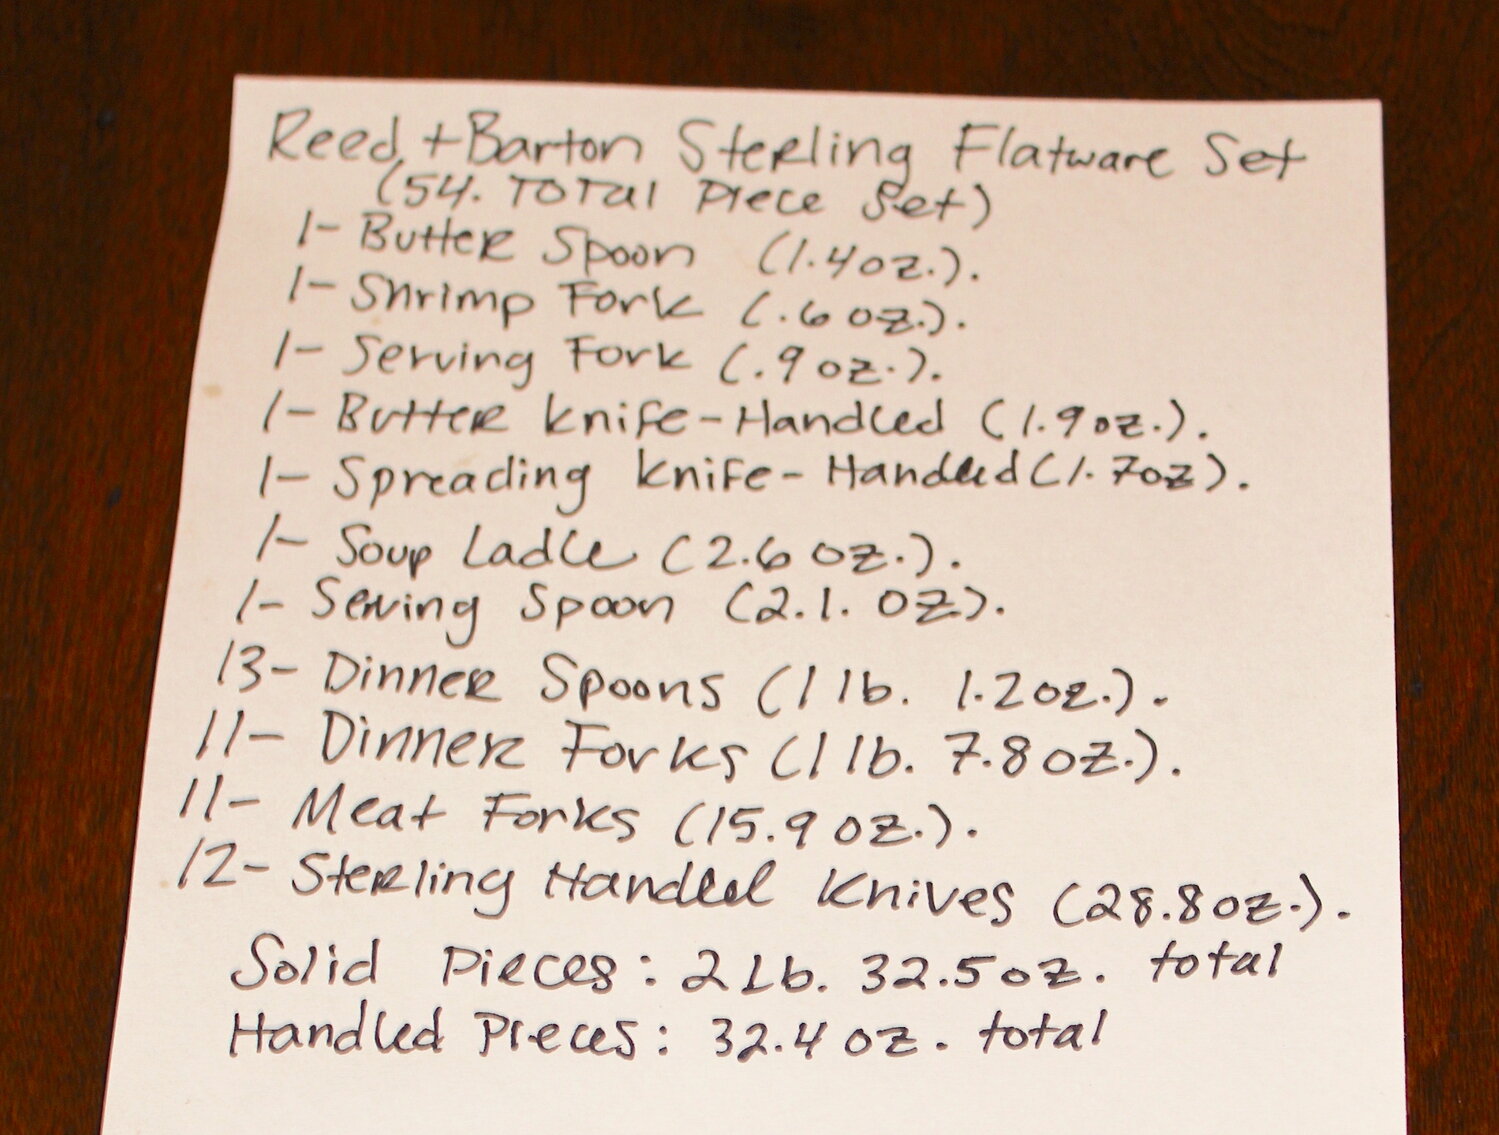 Reed + Barton Sterling Flatware Set
(54. Total Piece Set)
1- Butter Spoon (1.4oz.).
1- Shrimp Fork (.6 oz.).
1- Serving Fork (.9 oz.).
1- Butter Knife-Handled (1.9oz.).
1- Spreading Knife- Handled (1.7oz).
1- Soup Ladle (2.6 oz.).
1- Serving Spoon (2.1. oz).
13- Dinner Spoons (1 lb. 1.2oz.).
11- Dinner Forks (1 lb. 7.8 oz.).
11- Meat Forks (15.9 oz.).
12- Sterling Handled Knives (28.8oz.).
Solid Pieces: 2 Lb. 32.5 oz. total
Handled Pieces: 32.4 oz. total